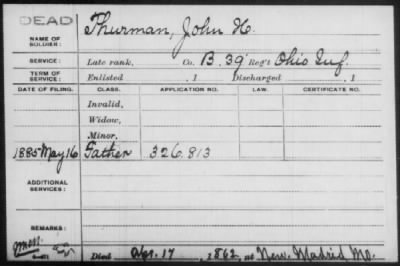 DEAD
NAME OF SOLDIER: Thurman, John H.
SERVICE: Late rank, Co. B. 39 Reg't Ohio Inf.
TERM OF SERVICE: Enlisted , 1 Discharged , 1
DATE OF FILING. CLASS. APPLICATION NO. LAW. CERTIFICATE NO.
Invalid,
Widow,
Minor,
1885 May 16 Father 326.813
ADDITIONAL SERVICES:
REMARKS:
Died Apr. 17, 1862, at New Madrid Mo.